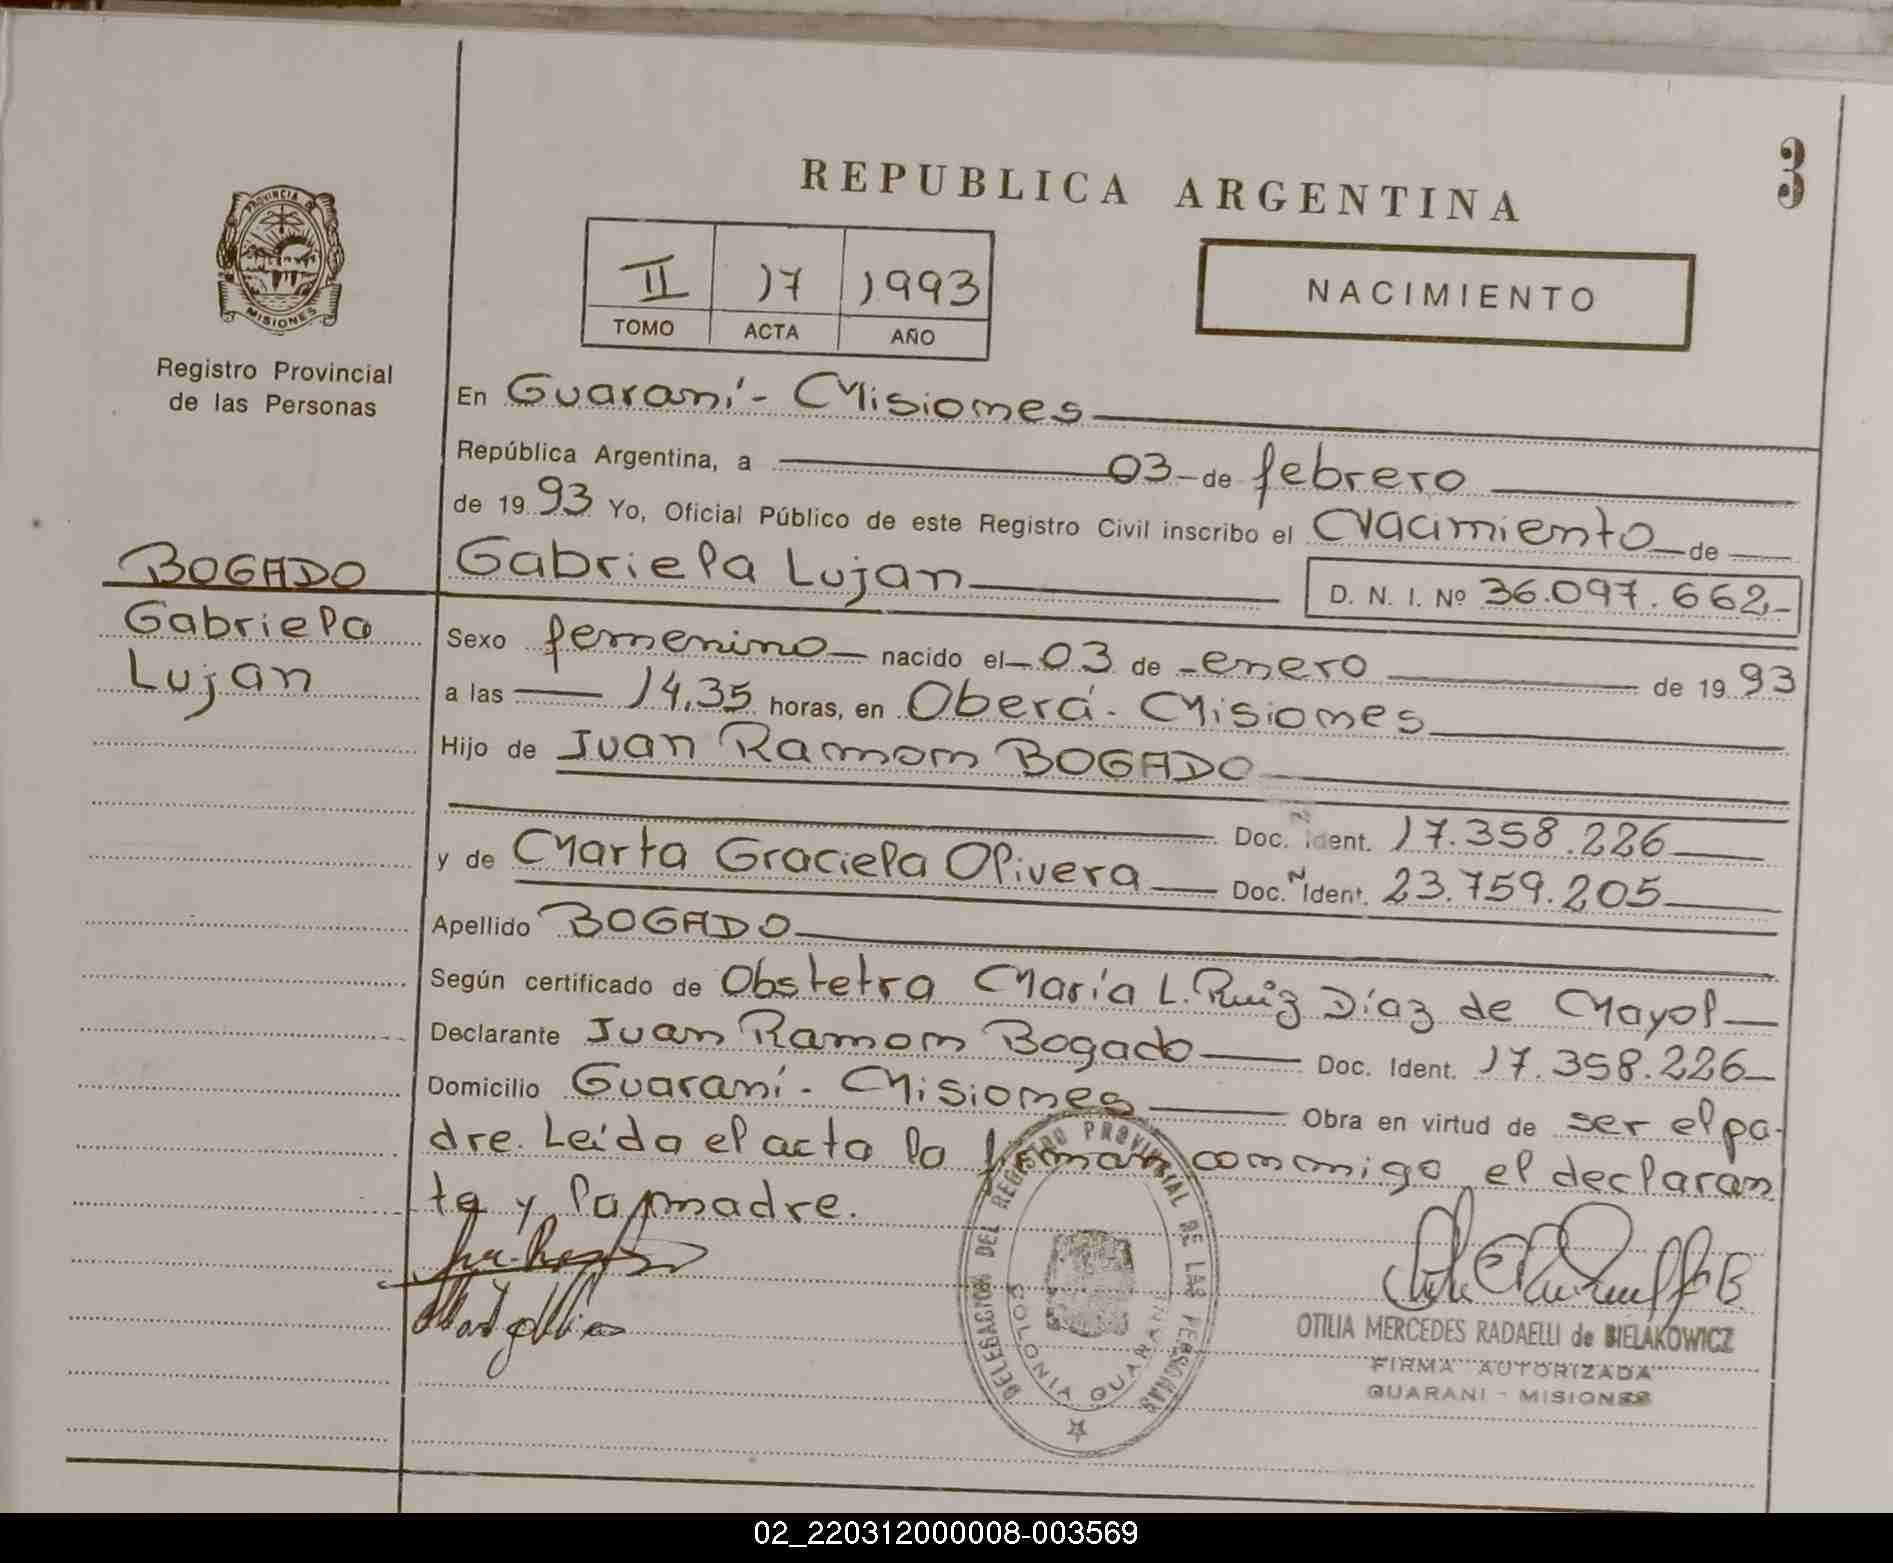 REPUBLICA ARGENTINA
3
PROVINCIA DE
MISIONES
Registro Provincial
de las Personas
II 17 1993
TOMO ACTA AÑO
NACIMIENTO
En Guaraní - Misiones
República Argentina, a 03 - de febrero
de 1993 Yo, Oficial Público de este Registro Civil inscribo el Nacimiento de
BOGADO
Gabriela
Lujan
Gabriela Lujan D. N. I. Nº 36.097.662-
Sexo femenino nacido el 03 de enero de 1993
a las 14,35 horas, en Oberá - Misiones
Hijo de Juan Ramon BOGADO
Doc. Ident. 17.358.226
y de Marta Graciela Olivera Doc. Ident. 23.759.205
Apellido BOGADO
Según certificado de Obstetra María L. Ruiz Díaz de Mayol
Declarante Juan Ramon Bogado Doc. Ident. 17.358.226
Domicilio Guaraní - Misiones Obra en virtud de ser el pa-
dre. Leída el acta la firman conmigo, el declaran
te y la madre.
DELEGACION DEL REGISTRO PROVINCIAL DE LAS PERSONAS
COLONIA GUARANI
OTILIA MERCEDES RADAELLI de BIELAKOWICZ
FIRMA AUTORIZADA
GUARANI - MISIONES
02_220312000008-003569